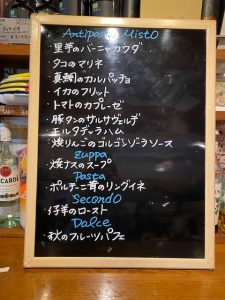 Antipasto MistO
・里芋のバーニャカウダ
・タコのマリネ
・真鯛のカルパッチョ
・イカのフリット
・トマトのカプレーゼ
・豚タンのサルサヴェルデ
・モルタデッラハム
・焼りんごのゴルゴンゾーラソース
zuppa
・焼ナスのスープ
Pasta
・ポルチーニ茸のリングイネ
SecondO
・仔羊のロースト
Dolce
・秋のフルーツパフェ
BACARDI